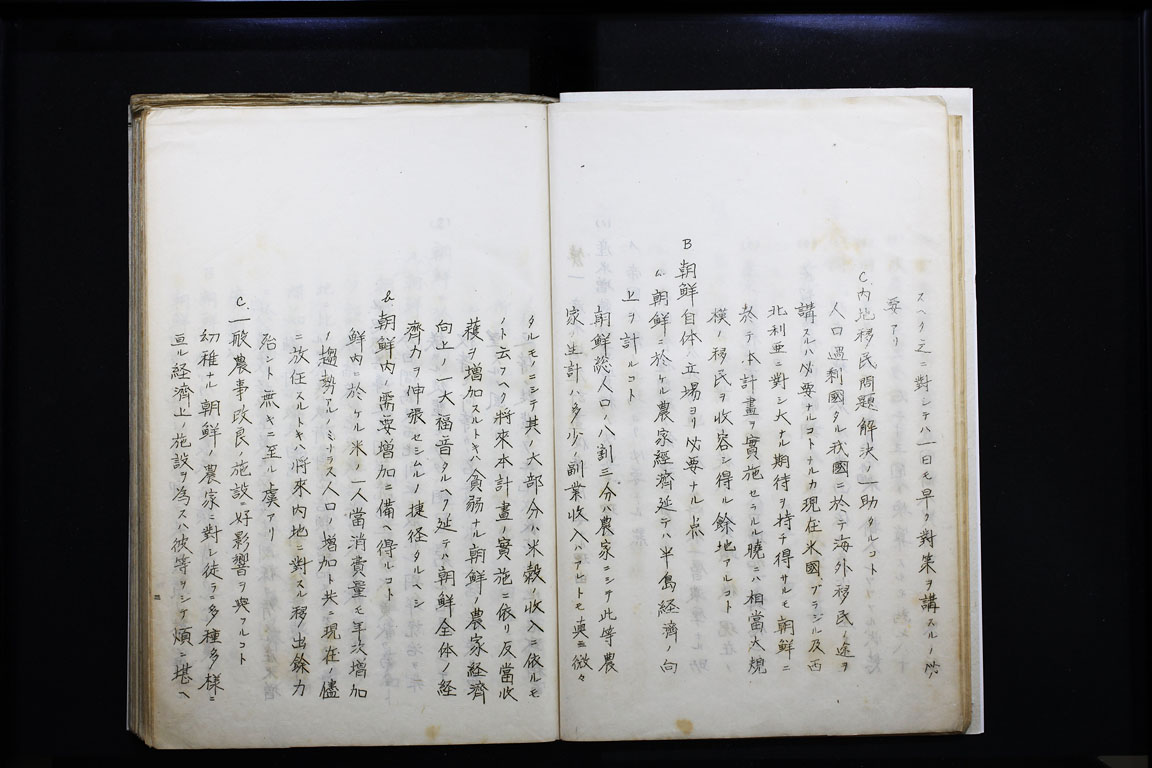 スヘク之ニ對シテハ一日モ早ク對策ヲ講スルノ必
要アリ
C.内地移民問題解決ノ一助タルコト
人口過剰國タル我國ニ於テ海外移民ノ途ヲ
講スルハ必要ナルコトナルカ現在米國、ブラジル及西
北利亜ニ對シ大ナル期待ヲ持チ得サルモ朝鮮ニ
於テ本計畫ヲ實施セラルル曉ニハ相當大規
模ノ移民ヲ收容シ得ル餘地アルコト
B 朝鮮自体ノ立場ヨリ必要ナル点
a. 朝鮮ニ於ケル農家経済延テハ半島経済ノ向
上ヲ計ルコト
朝鮮総人口ノ八割三分ハ農家ニシテ此等農
家ノ生計ハ多少ノ副業收入ハアレトモ真ニ微々
タルモノニシテ其ノ大部分ハ米穀ノ收入ニ依ルモ
ノト云フヘク将來本計畫ノ實施ニ依リ反當收
穫ヲ増加スルトキハ貧弱ナル朝鮮ノ農家経済
向上ノ一大福音タルヘク延テハ朝鮮全体ノ経
濟力ヲ伸張セシムルノ捷径タルヘシ
b 朝鮮内ノ需要増加ニ備ヘ得ルコト
鮮内ニ於ケル米ノ一人當消費量モ年次増加
ノ趨勢アルノミナラス人口ノ増加ト共ニ現在ノ儘
ニ放任スルトキハ将來内地ニ對スル移出餘力
殆ント無キニ至ル虞アリ
C.一般農事改良ノ施設ニ好影響ヲ與フルコト
幼稚ナル朝鮮ノ農家ニ對シ徒ラニ多種多様ニ
亘ル経濟上ノ施設ヲ為スハ彼等ヲシテ煩ニ堪ヘ